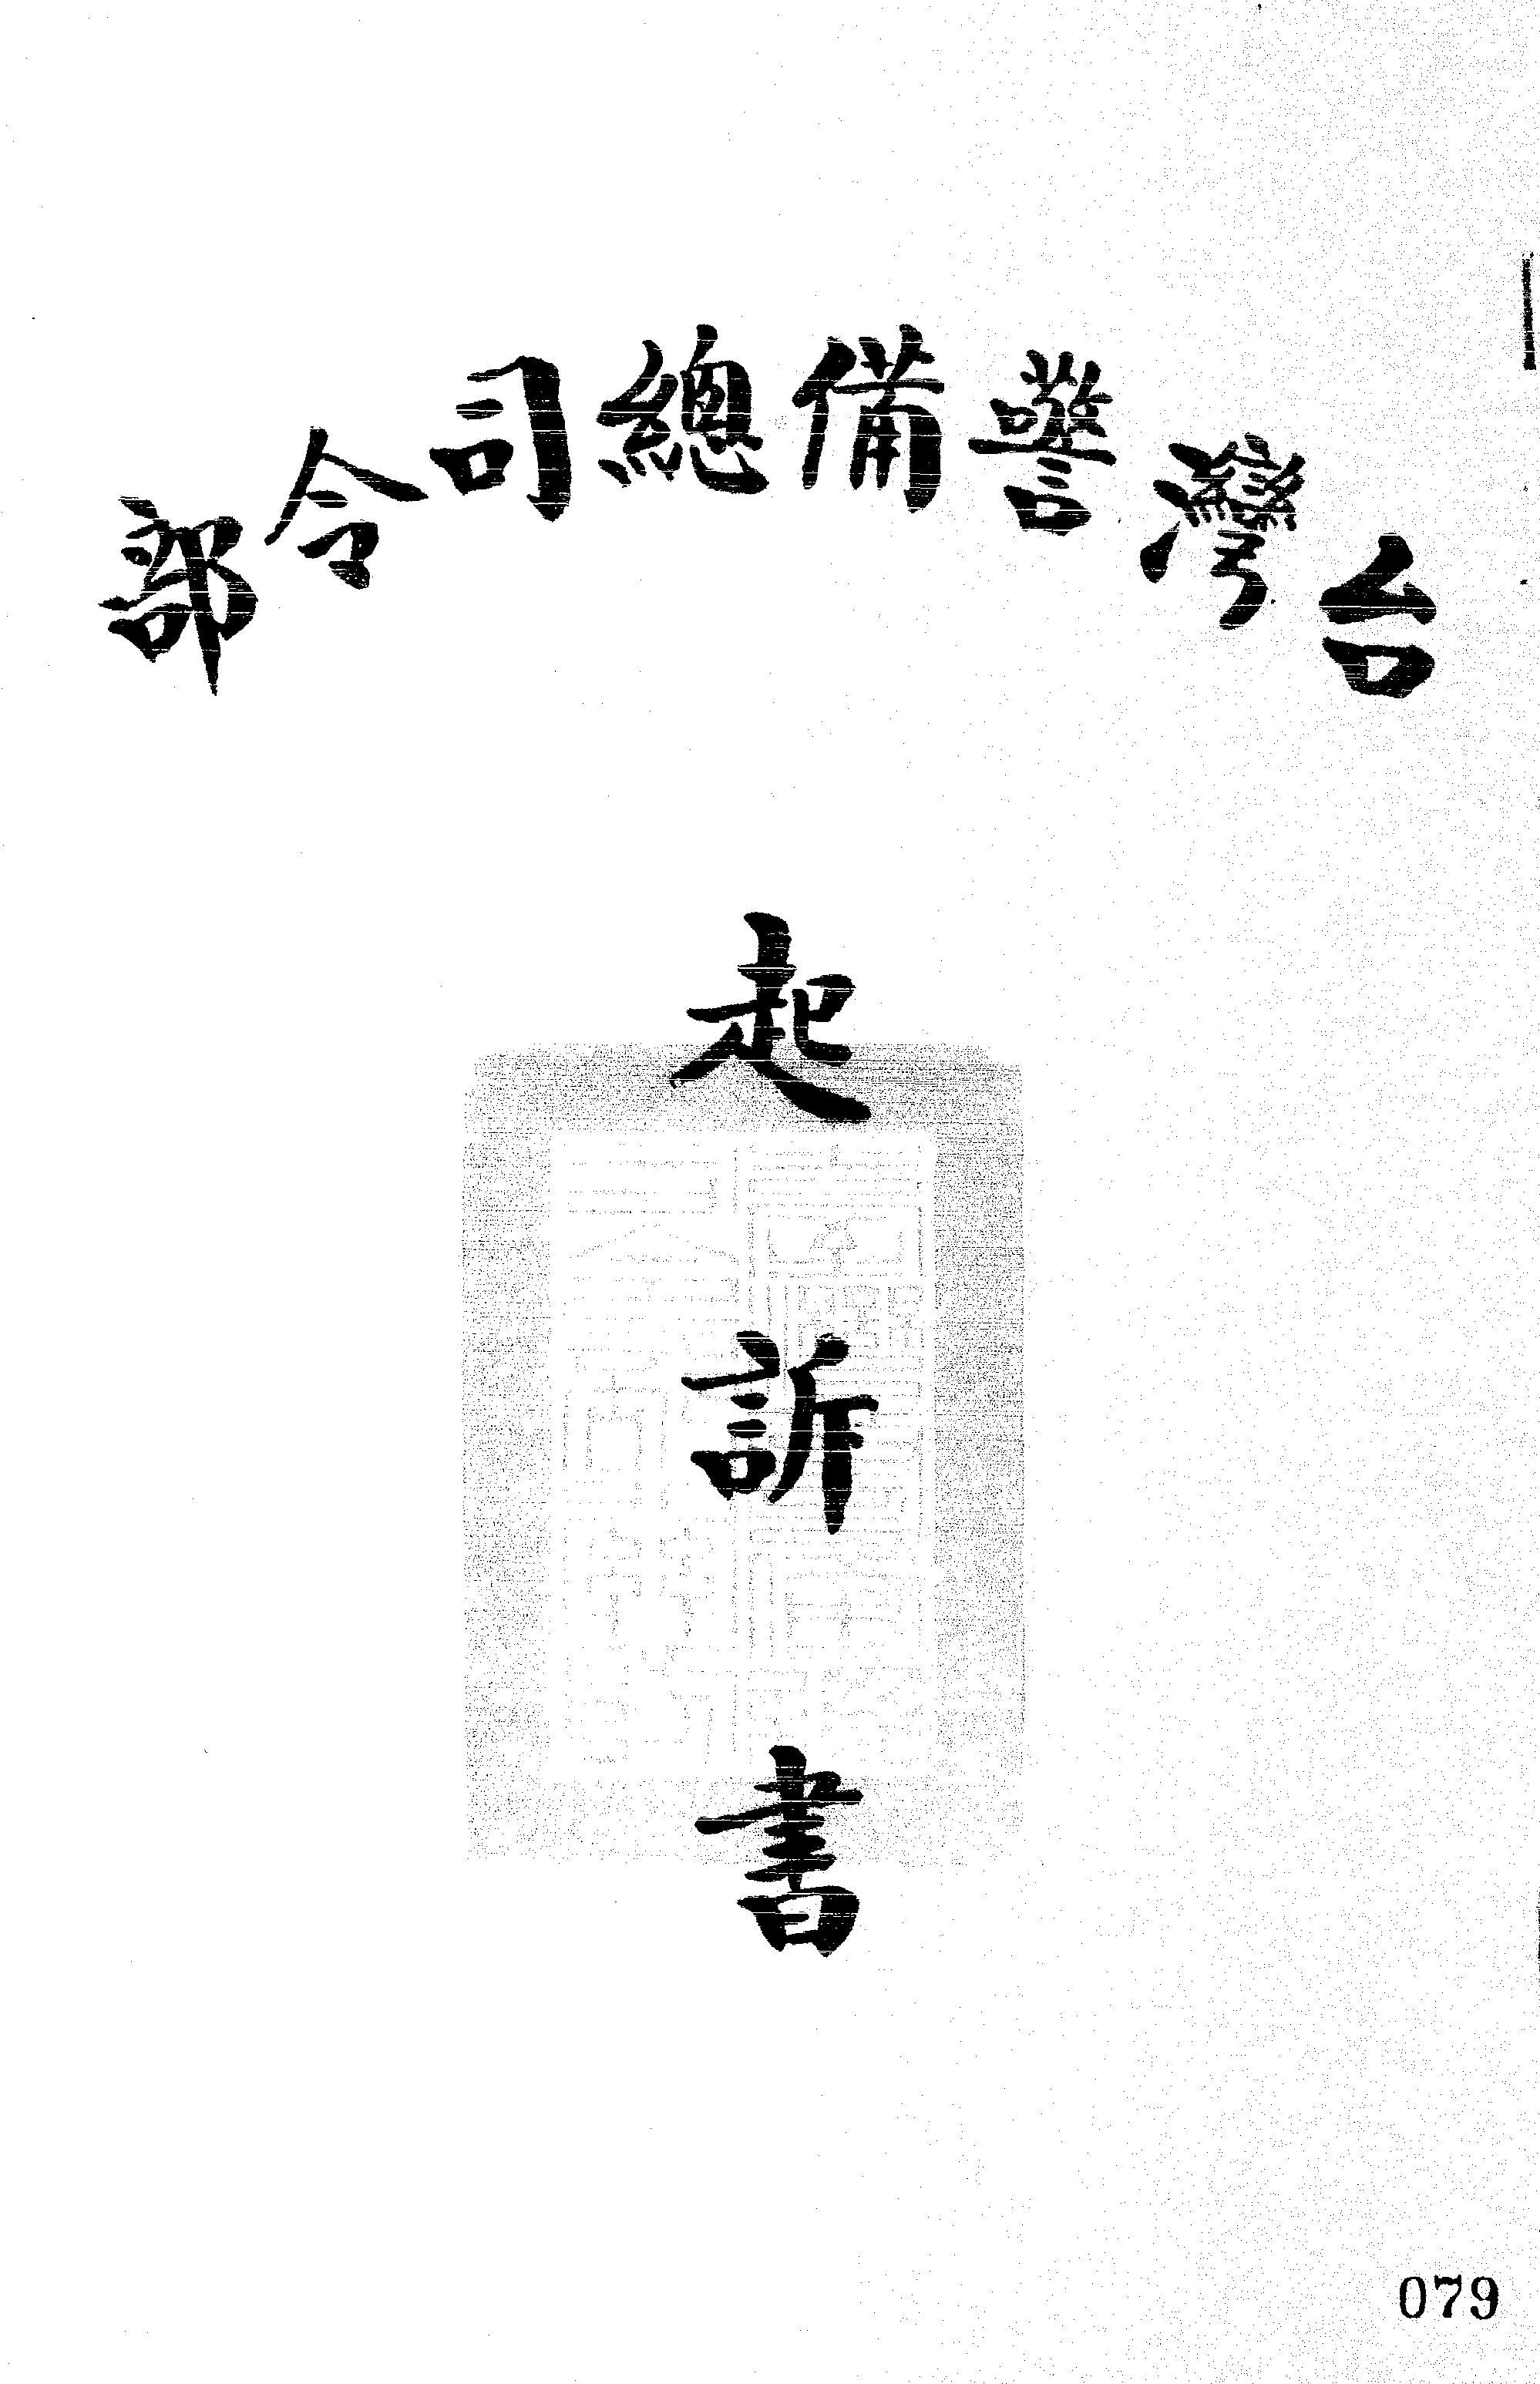 台灣警備總司令部
起訴書
079